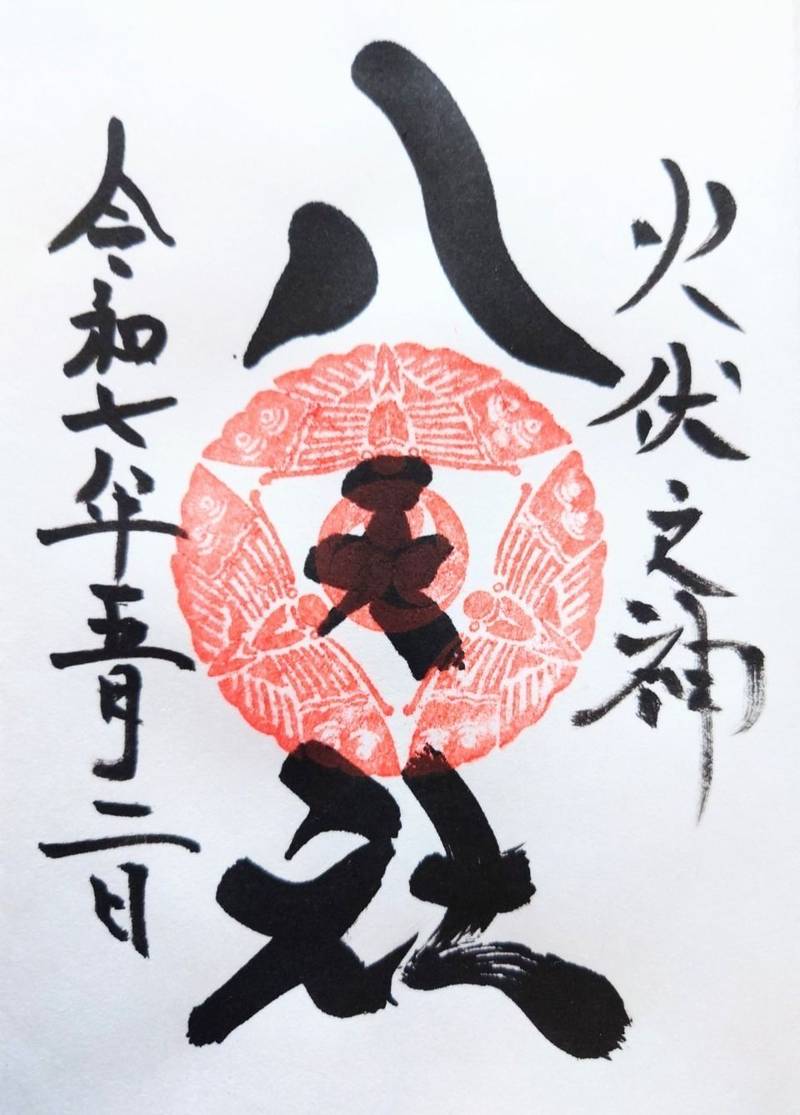 火伏之神
八天社
令和七年五月二日